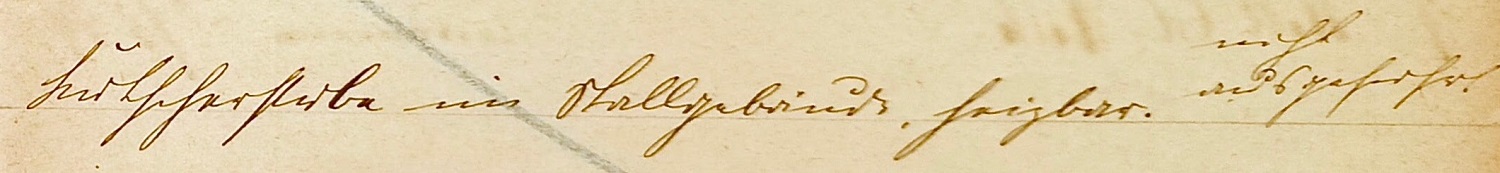 Kutscherstube im Stallgebäude, heizbar. nicht
ausgeführt